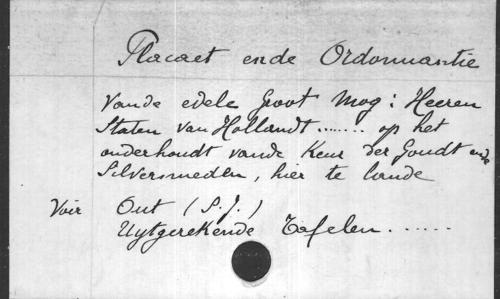 Placaet ende Ordonnantie
Vande edele Groot Mog: Heeren
Staten van Hollandt ....... op het
onderhoudt vande Keur der Goudt ende
Silversmeden, hier te lande
Voir Out (S. J.)
Uytgerekende Tafelen ......